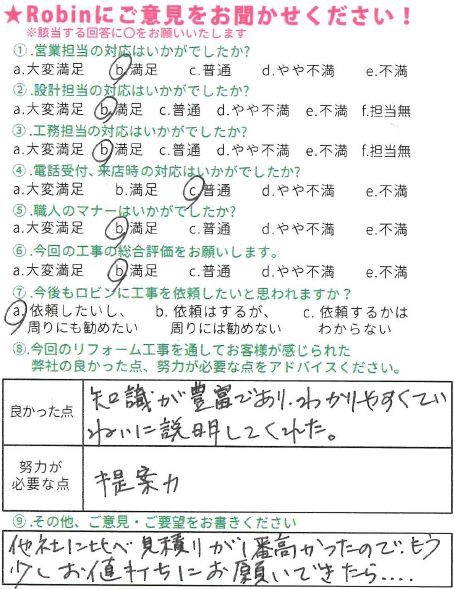 ★Robinにご意見をお聞かせください！
※該当する回答に〇をお願いいたします
①.営業担当の対応はいかがでしたか?
a.大変満足 b.満足 c.普通 d.やや不満 e.不満
②.設計担当の対応はいかがでしたか?
a.大変満足 b.満足 c.普通 d.やや不満 e.不満 f.担当無
③.工務担当の対応はいかがでしたか?
a.大変満足 b.満足 c.普通 d.やや不満 e.不満 f.担当無
④.電話受付、来店時の対応はいかがでしたか?
a.大変満足 b.満足 c.普通 d.やや不満 e.不満
⑤.職人のマナーはいかがでしたか?
a.大変満足 b.満足 c.普通 d.やや不満 e.不満
⑥.今回の工事の総合評価をお願いします。
a.大変満足 b.満足 c.普通 d.やや不満 e.不満
⑦.今後もロビンに工事を依頼したいと思われますか？
a.依頼したいし、 b. 依頼はするが、 c. 依頼するかは
周りにも勧めたい 周りには勧めない わからない
⑧.今回のリフォーム工事を通してお客様が感じられた
弊社の良かった点、努力が必要な点をアドバイスください。
良かった点
知識が豊富であり、わかりやすくてい
ねいに説明してくれた。
努力が
必要な点
提案力
⑨.その他、ご意見・ご要望をお書きください
他社に比べ見積りが1番高かったので、もう
少しお値打ちにお願いできたら....